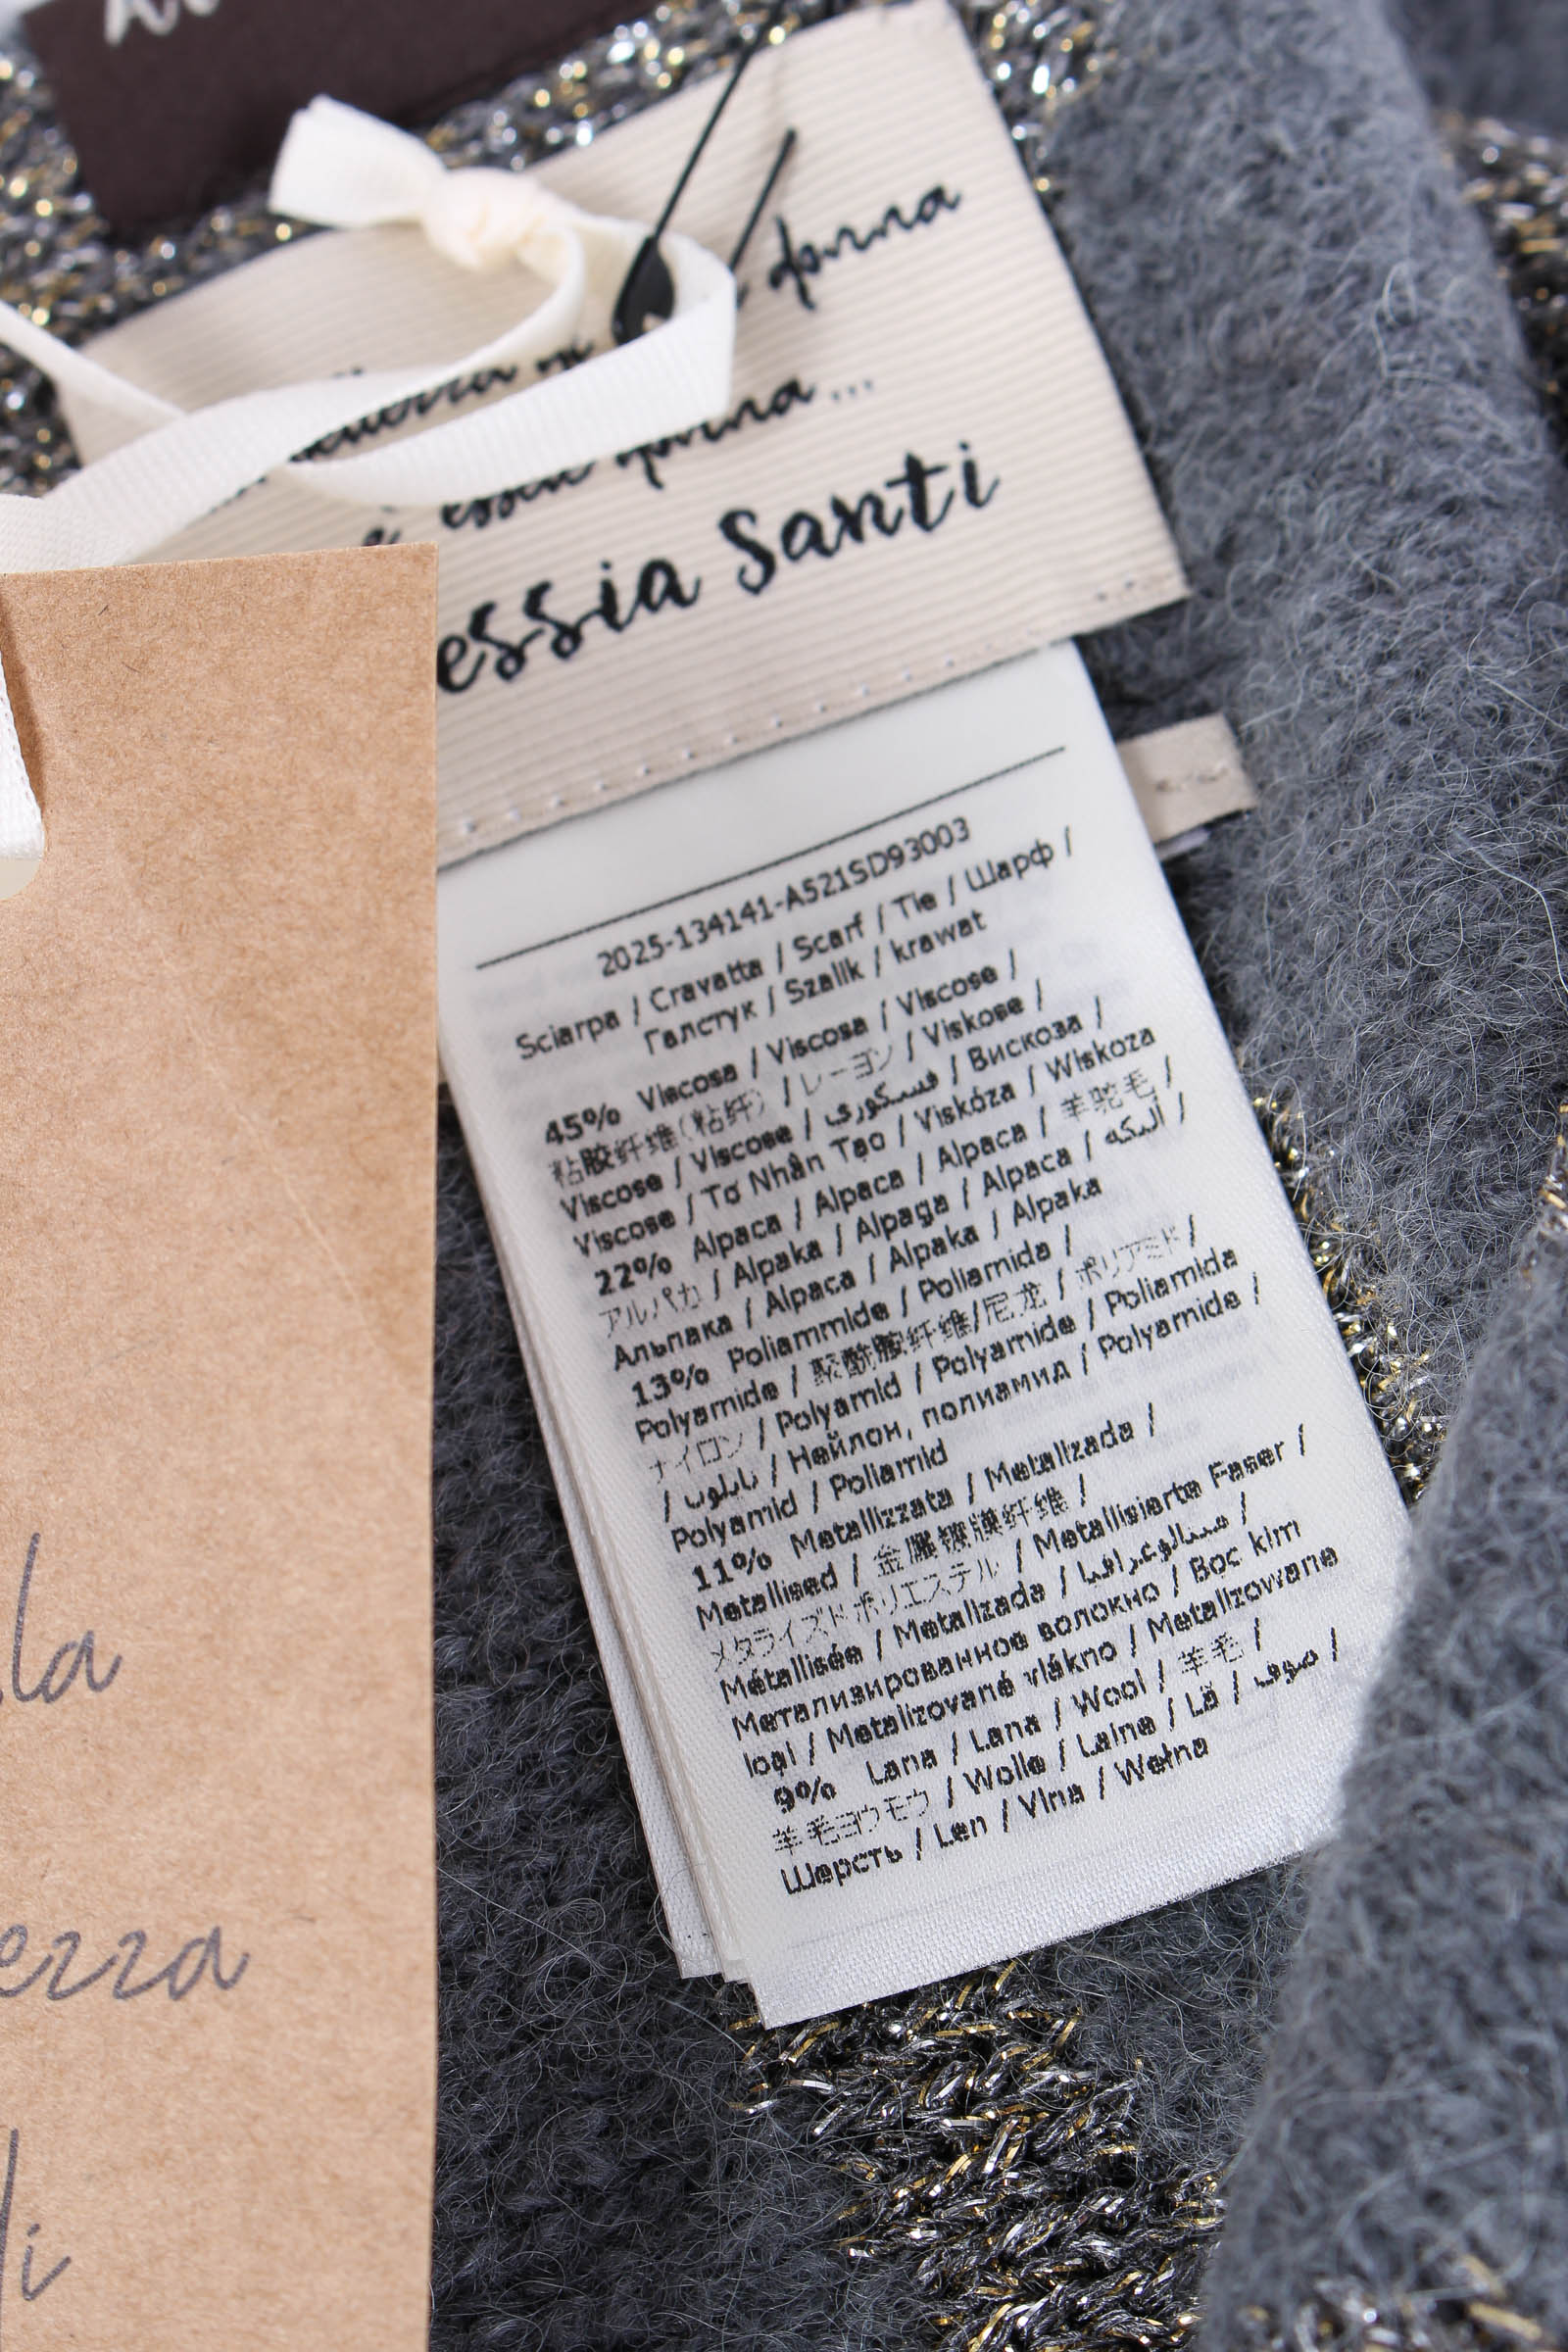 donna
è essere donna...
essia Santi
2025-134141-A521SD93003
Sciarpa / Cravatta / Scarf / Tie / Шарф /
Галстук / Szalik / krawat
45% Viscosa / Viscosa / Viscose /
粘胶纤维(粘纤) / レーヨン / Viskose /
Viscose / Viscose / فسكوزى / Вискоза /
Viscose / Tơ Nhân Tạo / Viskóza / Wiskoza
22% Alpaca / Alpaca / Alpaca / 羊驼毛 /
アルパカ / Alpaka / Alpaga / Alpaca / البكه /
Альпака / Alpaca / Alpaka / Alpaka
13% Poliammide / Poliamida /
Polyamide / 聚酰胺纤维/尼龙 / ポリアミド /
ナイロン / Polyamid / Polyamide / Poliamida
/ نايلون / Нейлон, полиамид / Polyamide /
Polyamid / Poliamid
11% Metallizzata / Metalizada /
Metallised / 金属镀膜纤维 /
メタライズドポリエステル / Metallisierte Faser /
Métallisée / Metalizada /
Метализированное волокно / Bọc kim
loại / Metalizované vlákno / Metalizowane
9% Lana / Lana / Wool / 羊毛 /
羊毛ヨウモウ / Wolle / Laine / Lã / صوف /
Шерсть / Len / Vlna / Wełna
la
ezza
di